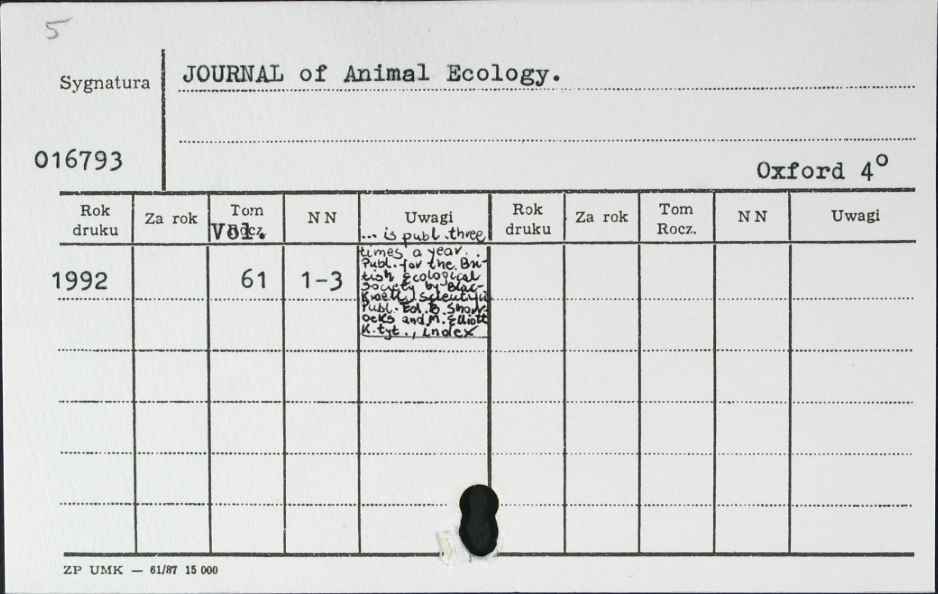 5
Sygnatura
JOURNAL of Animal Ecology.
016793
Oxford 4º
Rok druku Za rok Tom Rocz. Vol. NN Uwagi Rok druku Za rok Tom Rocz. NN Uwagi
1992 61 1-3
... is publ. three
times a year.
Publ. for the Bri-
tish Ecological
Society by Blac-
kwell Scientific
Publ. Ed. B. Shorr-
ocks and M. Elliott
K. tyt., index
ZP UMK — 61/87 15 000